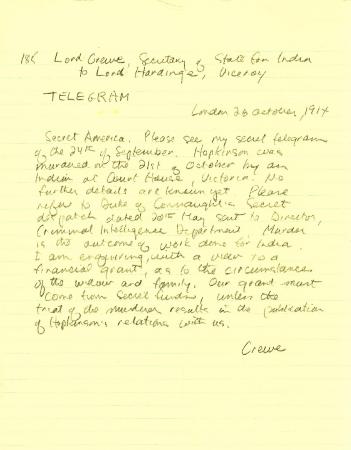 185 Lord Crewe, Secretary of State for India
to Lord Hardinge, Viceroy
TELEGRAM
London 23 October, 1914
Secret America. Please see my secret telegram
of the 24th of September. Hopkinson was
murdered on the 21st of October by an
Indian at Court House, Victoria. No
further details are known yet Please
refer to Duke of Connaught's Secret
despatch dated 20th May sent to Director,
Criminal Intelligence Department. Murder
is the outcome of work done for India.
I am enquiring, with a view to a
financial grant, as to the circumstances
of the widow and family. Our grant must
come from secret funds, unless the
trial of the murderer results in the publication
of Hopkinson's relations with us.
Crewe